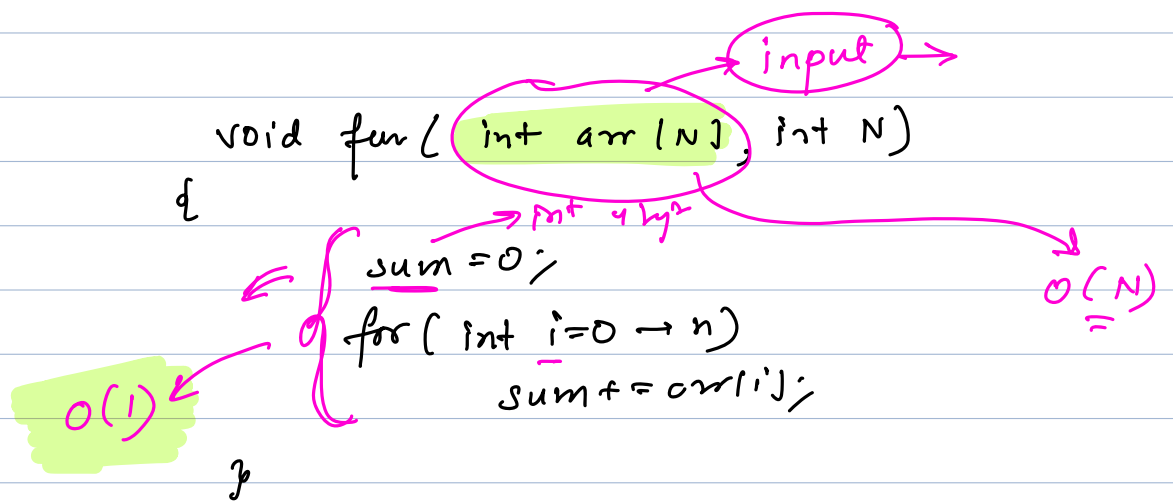 input
void fun( int arr [N], int N)
{
int 4 by²
sum = 0;
O(N)
for( int i=0 → n)
sum += arr[i];
O(1)
}